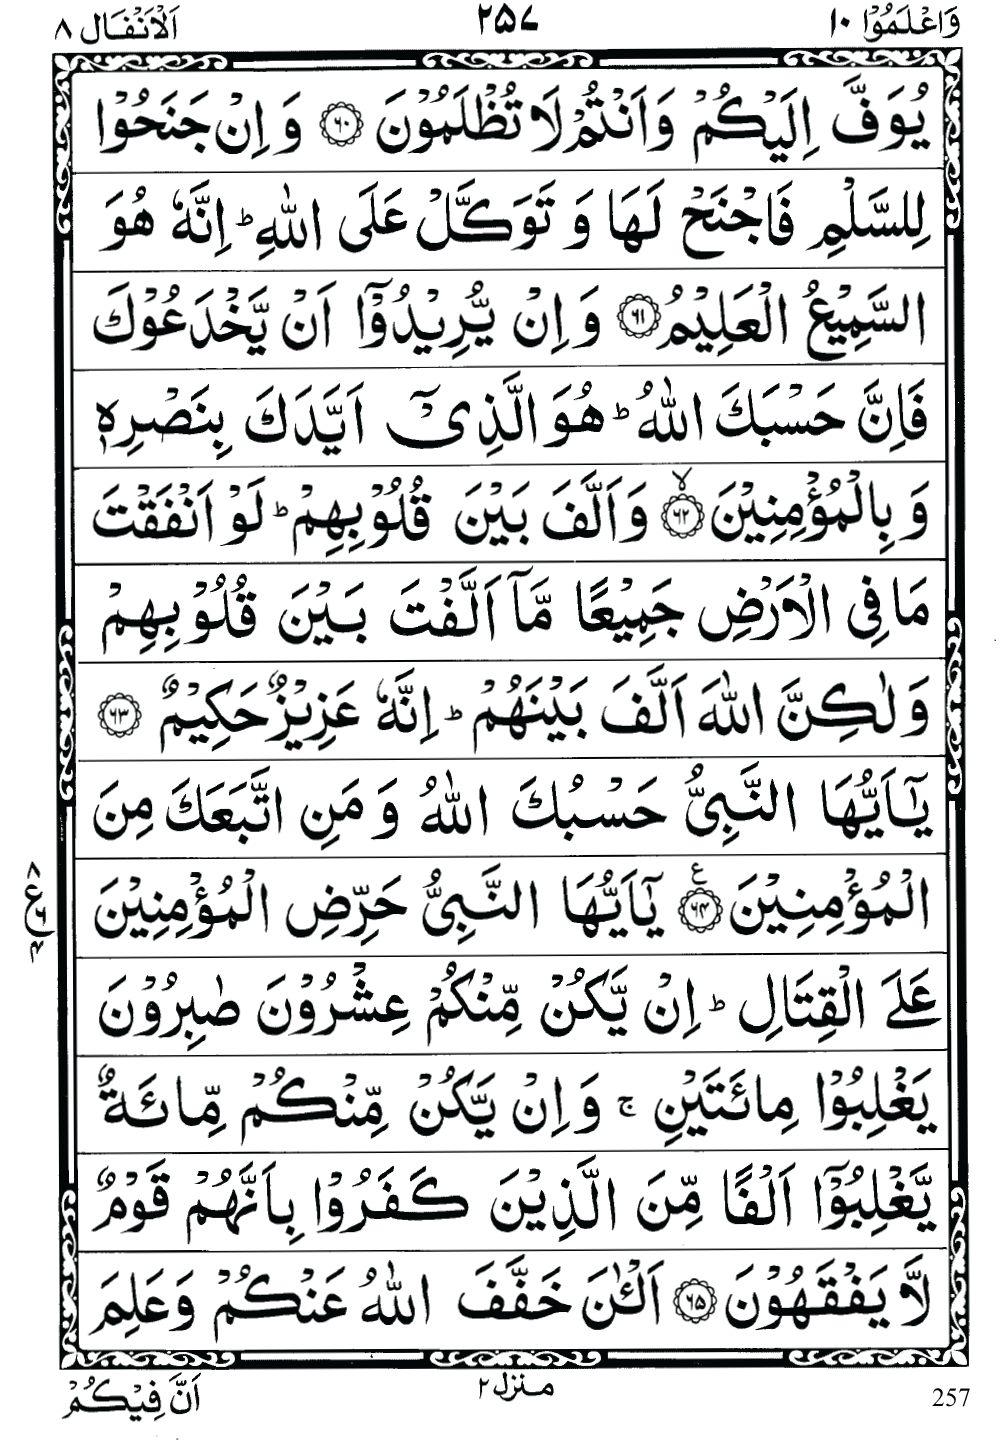 وَاعْلَمُوْۤا ۱۰
۲۵۷
اَلْاَنْفَال ۸
يُوَفَّ اِلَيْكُمْ وَاَنْتُمْ لَا تُظْلَمُوْنَ ﴿۶۰﴾ وَ اِنْ جَنَحُوْا
لِلسَّلْمِ فَاجْنَحْ لَهَا وَ تَوَكَّلْ عَلَى اللّٰهِ ؕ اِنَّهٗ هُوَ
السَّمِيْعُ الْعَلِيْمُ ﴿۶۱﴾ وَ اِنْ يُّرِيْدُوْۤا اَنْ يَّخْدَعُوْكَ
فَاِنَّ حَسْبَكَ اللّٰهُ ؕ هُوَ الَّذِىْۤ اَيَّدَكَ بِنَصْرِهٖ
وَ بِالْمُؤْمِنِيْنَ ﴿ۙ۶۲﴾ وَاَلَّفَ بَيْنَ قُلُوْبِهِمْ ؕ لَوْ اَنْفَقْتَ
مَا فِى الْاَرْضِ جَمِيْعًا مَّاۤ اَلَّفْتَ بَيْنَ قُلُوْبِهِمْ
وَلٰـكِنَّ اللّٰهَ اَلَّفَ بَيْنَهُمْ ؕ اِنَّهٗ عَزِيْزٌ حَكِيْمٌ ﴿۶۳﴾
يٰۤاَيُّهَا النَّبِىُّ حَسْبُكَ اللّٰهُ وَ مَنِ اتَّبَعَكَ مِنَ
الْمُؤْمِنِيْنَ ﴿۶۴﴾ ع يٰۤاَيُّهَا النَّبِىُّ حَرِّضِ الْمُؤْمِنِيْنَ
عَلَى الْقِتَالِ ؕ اِنْ يَّكُنْ مِّنْكُمْ عِشْرُوْنَ صٰبِرُوْنَ
يَغْلِبُوْا مِائَتَيْنِ ۚ وَ اِنْ يَّكُنْ مِّنْكُمْ مِّائَةٌ
يَّغْلِبُوْۤا اَلْفًا مِّنَ الَّذِيْنَ كَفَرُوْا بِاَنَّهُمْ قَوْمٌ
لَّا يَفْقَهُوْنَ ﴿۶۵﴾ اَلْـٰٔنَ خَفَّفَ اللّٰهُ عَنْكُمْ وَعَلِمَ
۸
ع ۶
۴
اَنَّ فِيْكُمْ
منزل ۲
257